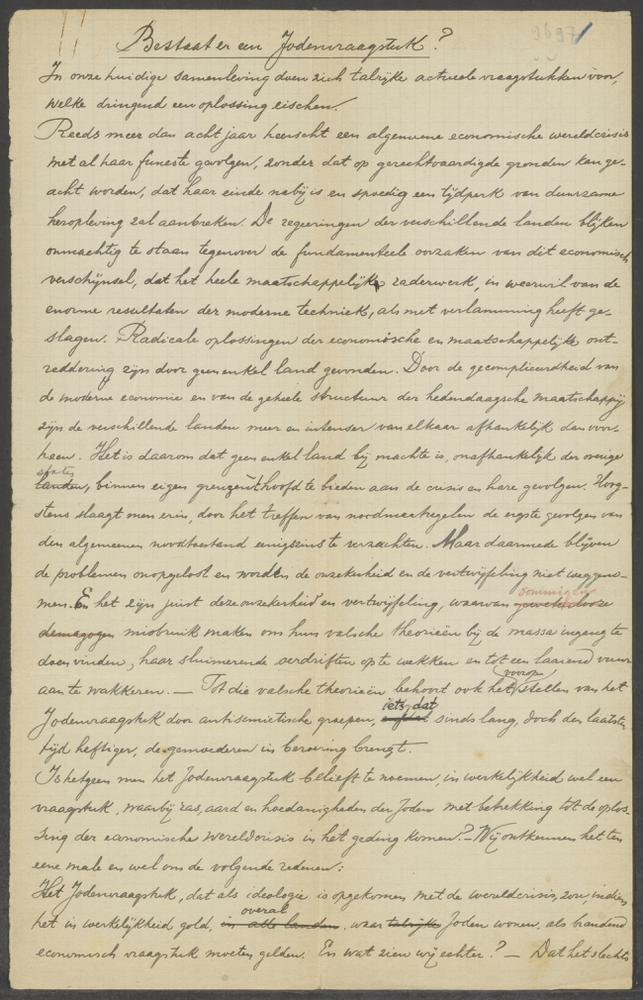 9697
Bestaat er een Jodenvraagstuk?
In onze huidige samenleving doen zich talrijke actueele vraagstukken voor,
welke dringend een oplossing eischen.
Reeds meer dan acht jaar heerscht een algemeene economische wereldcrisis
met al haar funeste gevolgen, zonder dat op gerechtvaardigde gronden kan ge-
acht worden, dat haar einde nabij is en spoedig een tijdperk van duurzame
heropleving zal aanbreken. De regeeringen der verschillende landen blijken
onmachtig te staan tegenover de fundamenteele oorzaken van dit economisch
verschijnsel, dat het heele maatschappelijke raderwerk, in weerwil van de
enorme resultaten der moderne techniek, als met verlamming heeft ge-
slagen. Radicale oplossingen der economische en maatschappelijke ont-
reddering zijn door geen enkel land gevonden. Door de gecompliceerdheid van
de moderne economie en van de geheele structuur der hedendaagsche maatschappij
zijn de verschillende landen meer en intenser van elkaar afhankelijk dan voor-
heen. Het is daarom dat geen enkel land bij machte is, onafhankelijk der overige
staten
landen, binnen eigen grenzen 't hoofd te bieden aan de crisis en hare gevolgen. Hoog-
stens slaagt men erin, door het treffen van noodmaatregelen de ergste gevolgen van
den algemeenen noodtoestand eenigszins te verzachten. Maar daarmede blijven
de problemen onopgelost en worden de onzekerheid en de vertwijfeling niet weggeno-
sommigen
men. En het zijn juist deze onzekerheid en vertwijfeling, waarvan gewetenlooze
demagogen misbruik maken om hun valsche theorieën bij de massa ingang te
doen vinden, haar sluimerende oerdriften op te wekken en tot een laaiend vuur
voorop
aan te wakkeren. — Tot die valsche theorieën behoort ook het stellen van het
iets, dat
Jodenvraagstuk door antisemietische groepen, sinds lang, doch den laatsten
tijd heftiger, de gemoederen in beroering brengt.
Is hetgeen men het Jodenvraagstuk belieft te noemen, in werkelijkheid wel een
vraagstuk, waarbij ras, aard en hoedanigheden der Joden met betrekking tot de oplos-
sing der economische wereldcrisis in het geding komen? — Wij ontkennen het ten
eene male en wel om de volgende redenen:
Het Jodenvraagstuk, dat als ideologie is opgekomen met de wereldcrisis, zou, indien
overal
het in werkelijkheid gold, in alle landen, waar talrijke Joden wonen, als brandend
economisch vraagstuk moeten gelden. En wat zien wij echter? — Dat het slechts